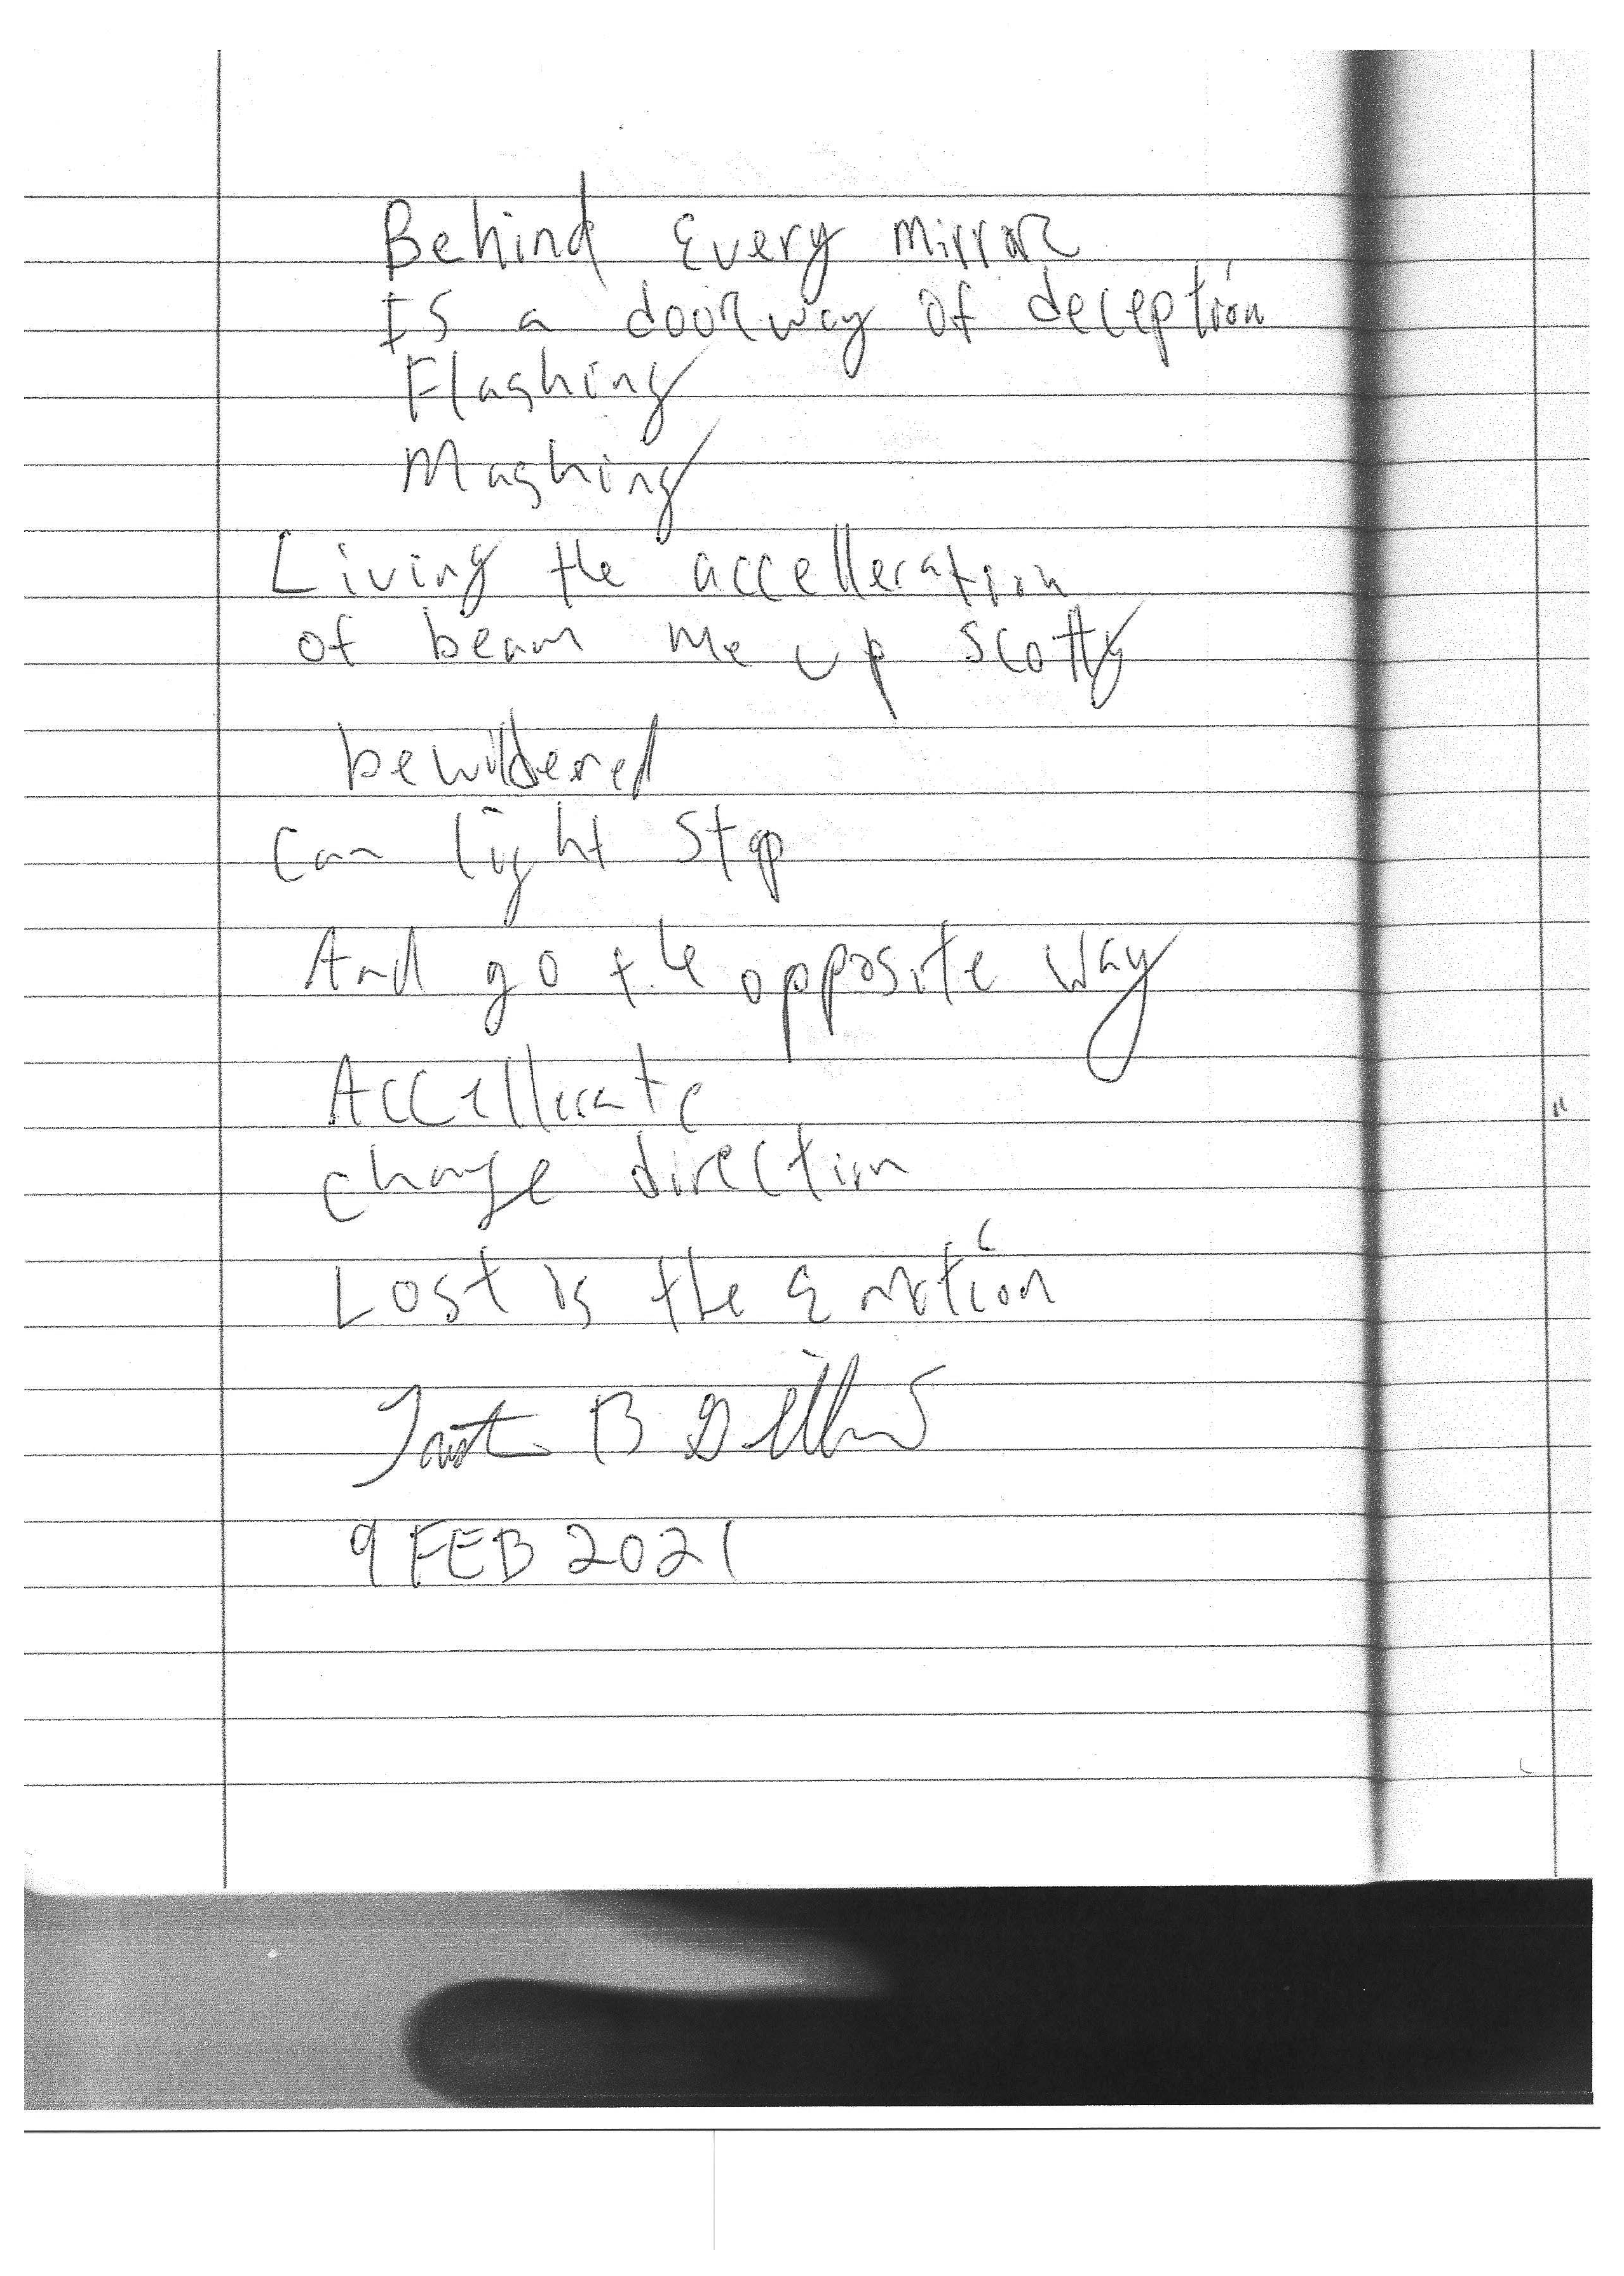 Behind Every mirror
Is a doorway of deception
Flashing
Mashing
Living the accelleration
of beam me up Scotty
bewildered
Can light Stop
And go the opposite Way
Accellerate
change direction
Lost is the Emotion
B
9 FEB 2021